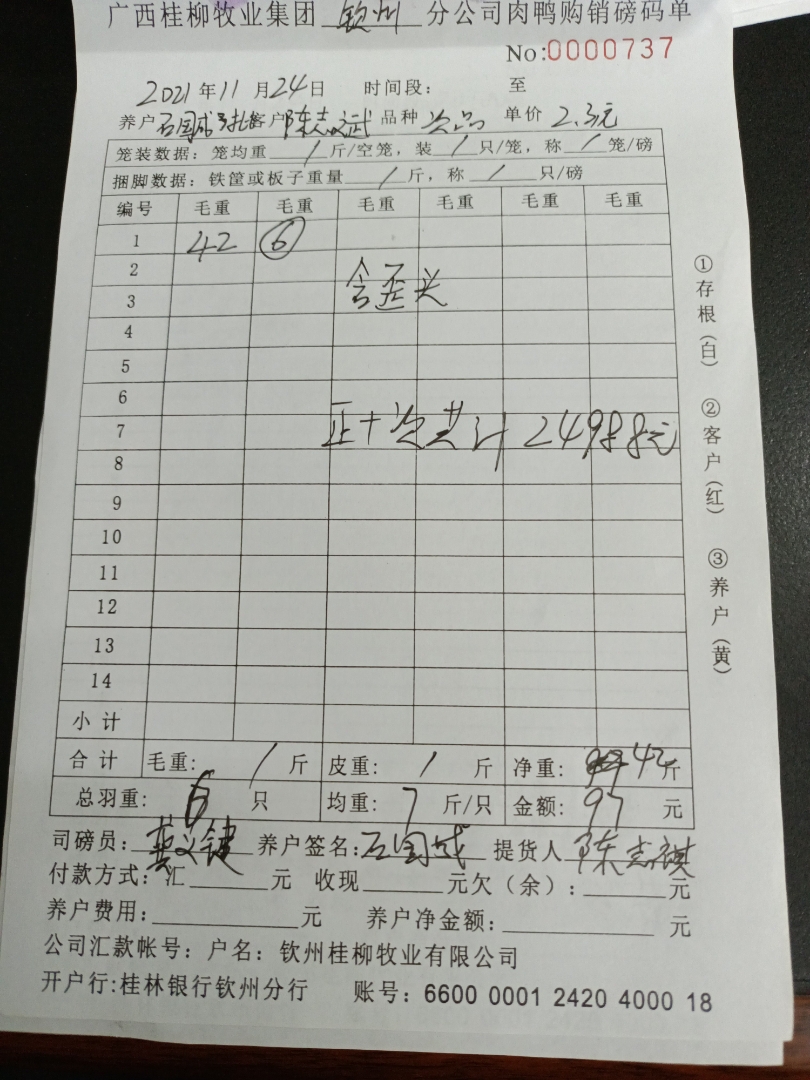 广西桂柳牧业集团 钦州 分公司肉鸭购销磅码单
No:0000737
2021年11月24日 时间段: 至
养户 石国成 客户 陈志 品种 次品 单价 2.3元
笼装数据: 笼均重 / 斤/空笼, 装 / 只/笼, 称 / 笼/磅
捆脚数据: 铁筐或板子重量 / 斤, 称 / 只/磅
编号 毛重 毛重 毛重 毛重 毛重 毛重
1 42 ⑥
2
3 含歪头
4
5
6
7 正十次共计24988元
8
9
10
11
12
13
14
小计
合计 毛重: / 斤 皮重: / 斤 净重: 42斤
总羽重: 6 只 均重: 7 斤/只 金额: 97 元
司磅员: 养户签名: 石国成 提货人 陈志祺
付款方式: 汇 元 收现 元欠(余): 元
养户费用: 元 养户净金额: 元
公司汇款帐号: 户名: 钦州桂柳牧业有限公司
开户行:桂林银行钦州分行 账号: 6600 0001 2420 4000 18
①存根(白) ②客户(红) ③养户(黄)